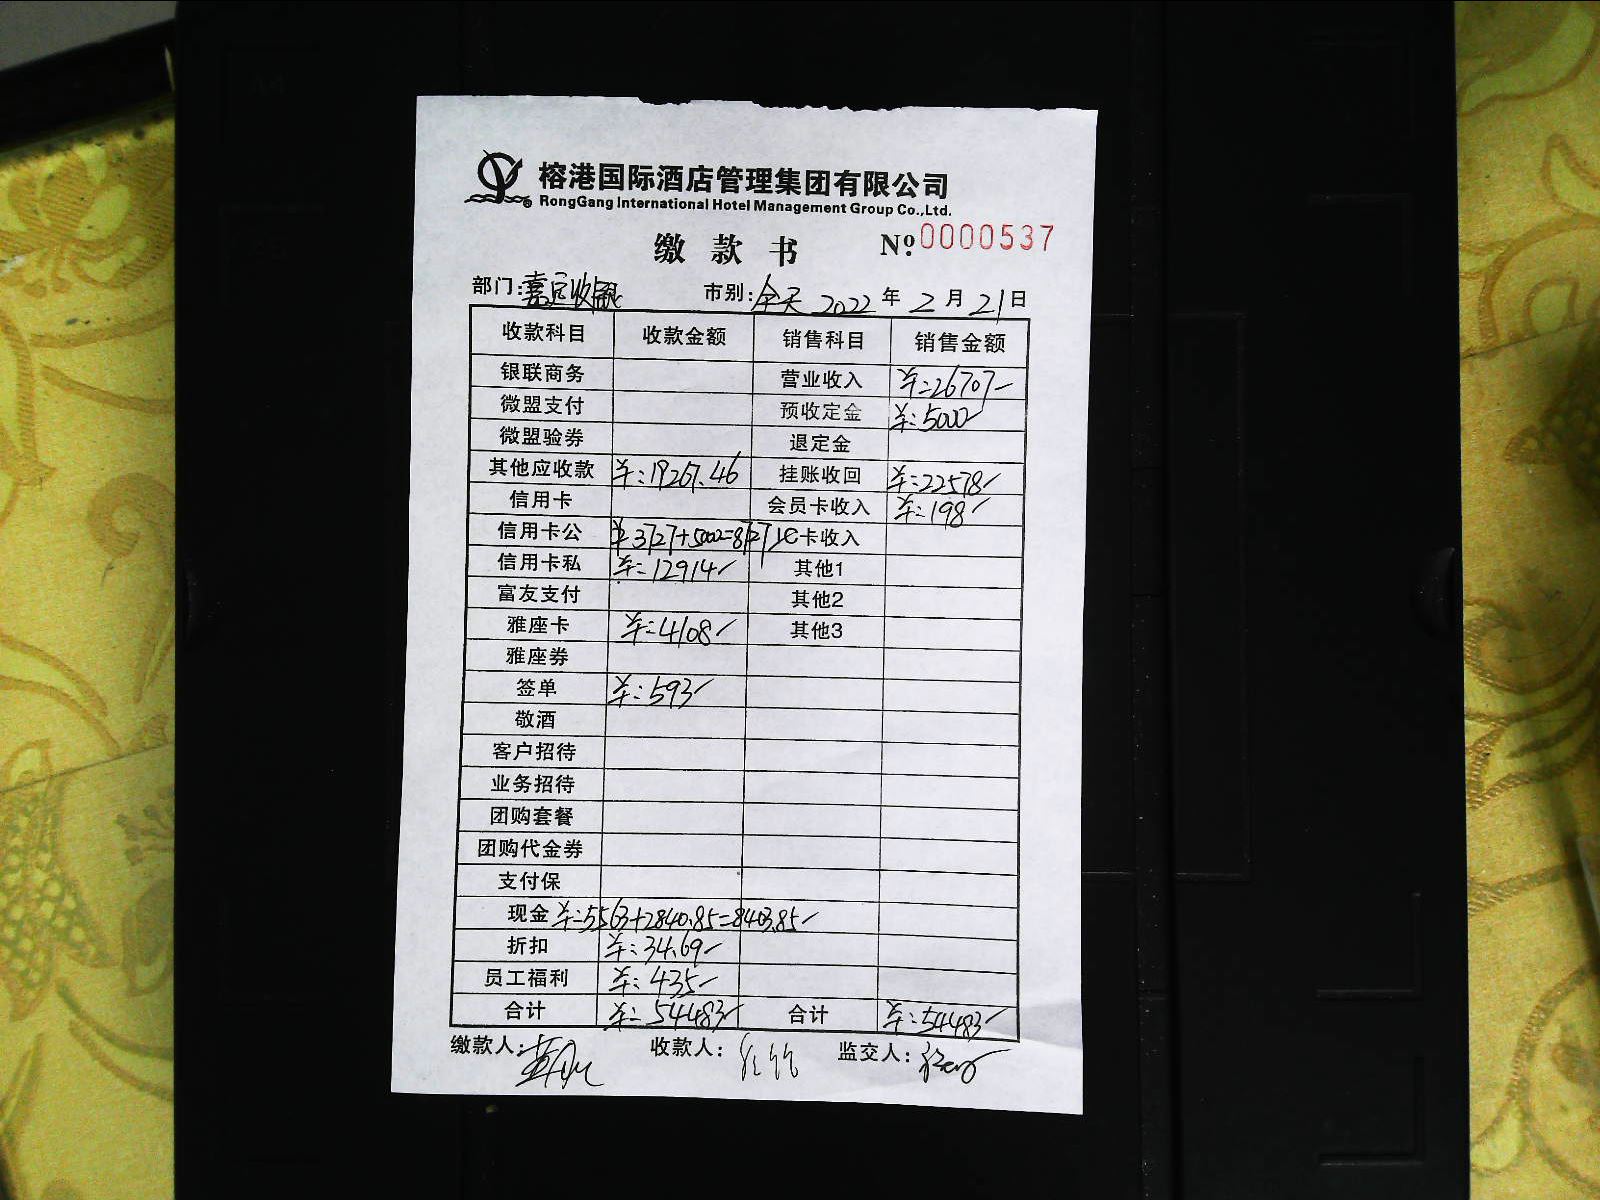 榕港国际酒店管理集团有限公司
RongGang International Hotel Management Group Co.,Ltd.
缴款书 No.0000537
部门:嘉定收银 市别:全天 2022年2月21日
收款科目 收款金额 销售科目 销售金额
银联商务 营业收入 ¥:26707
微盟支付 预收定金 ¥:5000
微盟验券 退定金
其他应收款 ¥:19267.46 挂账收回 ¥:22578
信用卡 会员卡收入 ¥:198
信用卡公 ¥3727+5000=8727 IC卡收入
信用卡私 ¥:12914 其他1
富友支付 其他2
雅座卡 ¥:4108 其他3
雅座券
签单 ¥:593
敬酒
客户招待
业务招待
团购套餐
团购代金券
支付保
现金 ¥:5563+2840.85=8403.85
折扣 ¥:34.69
员工福利 ¥:435
合计 ¥:54483 合计 ¥:54483
缴款人: 收款人: 监交人: